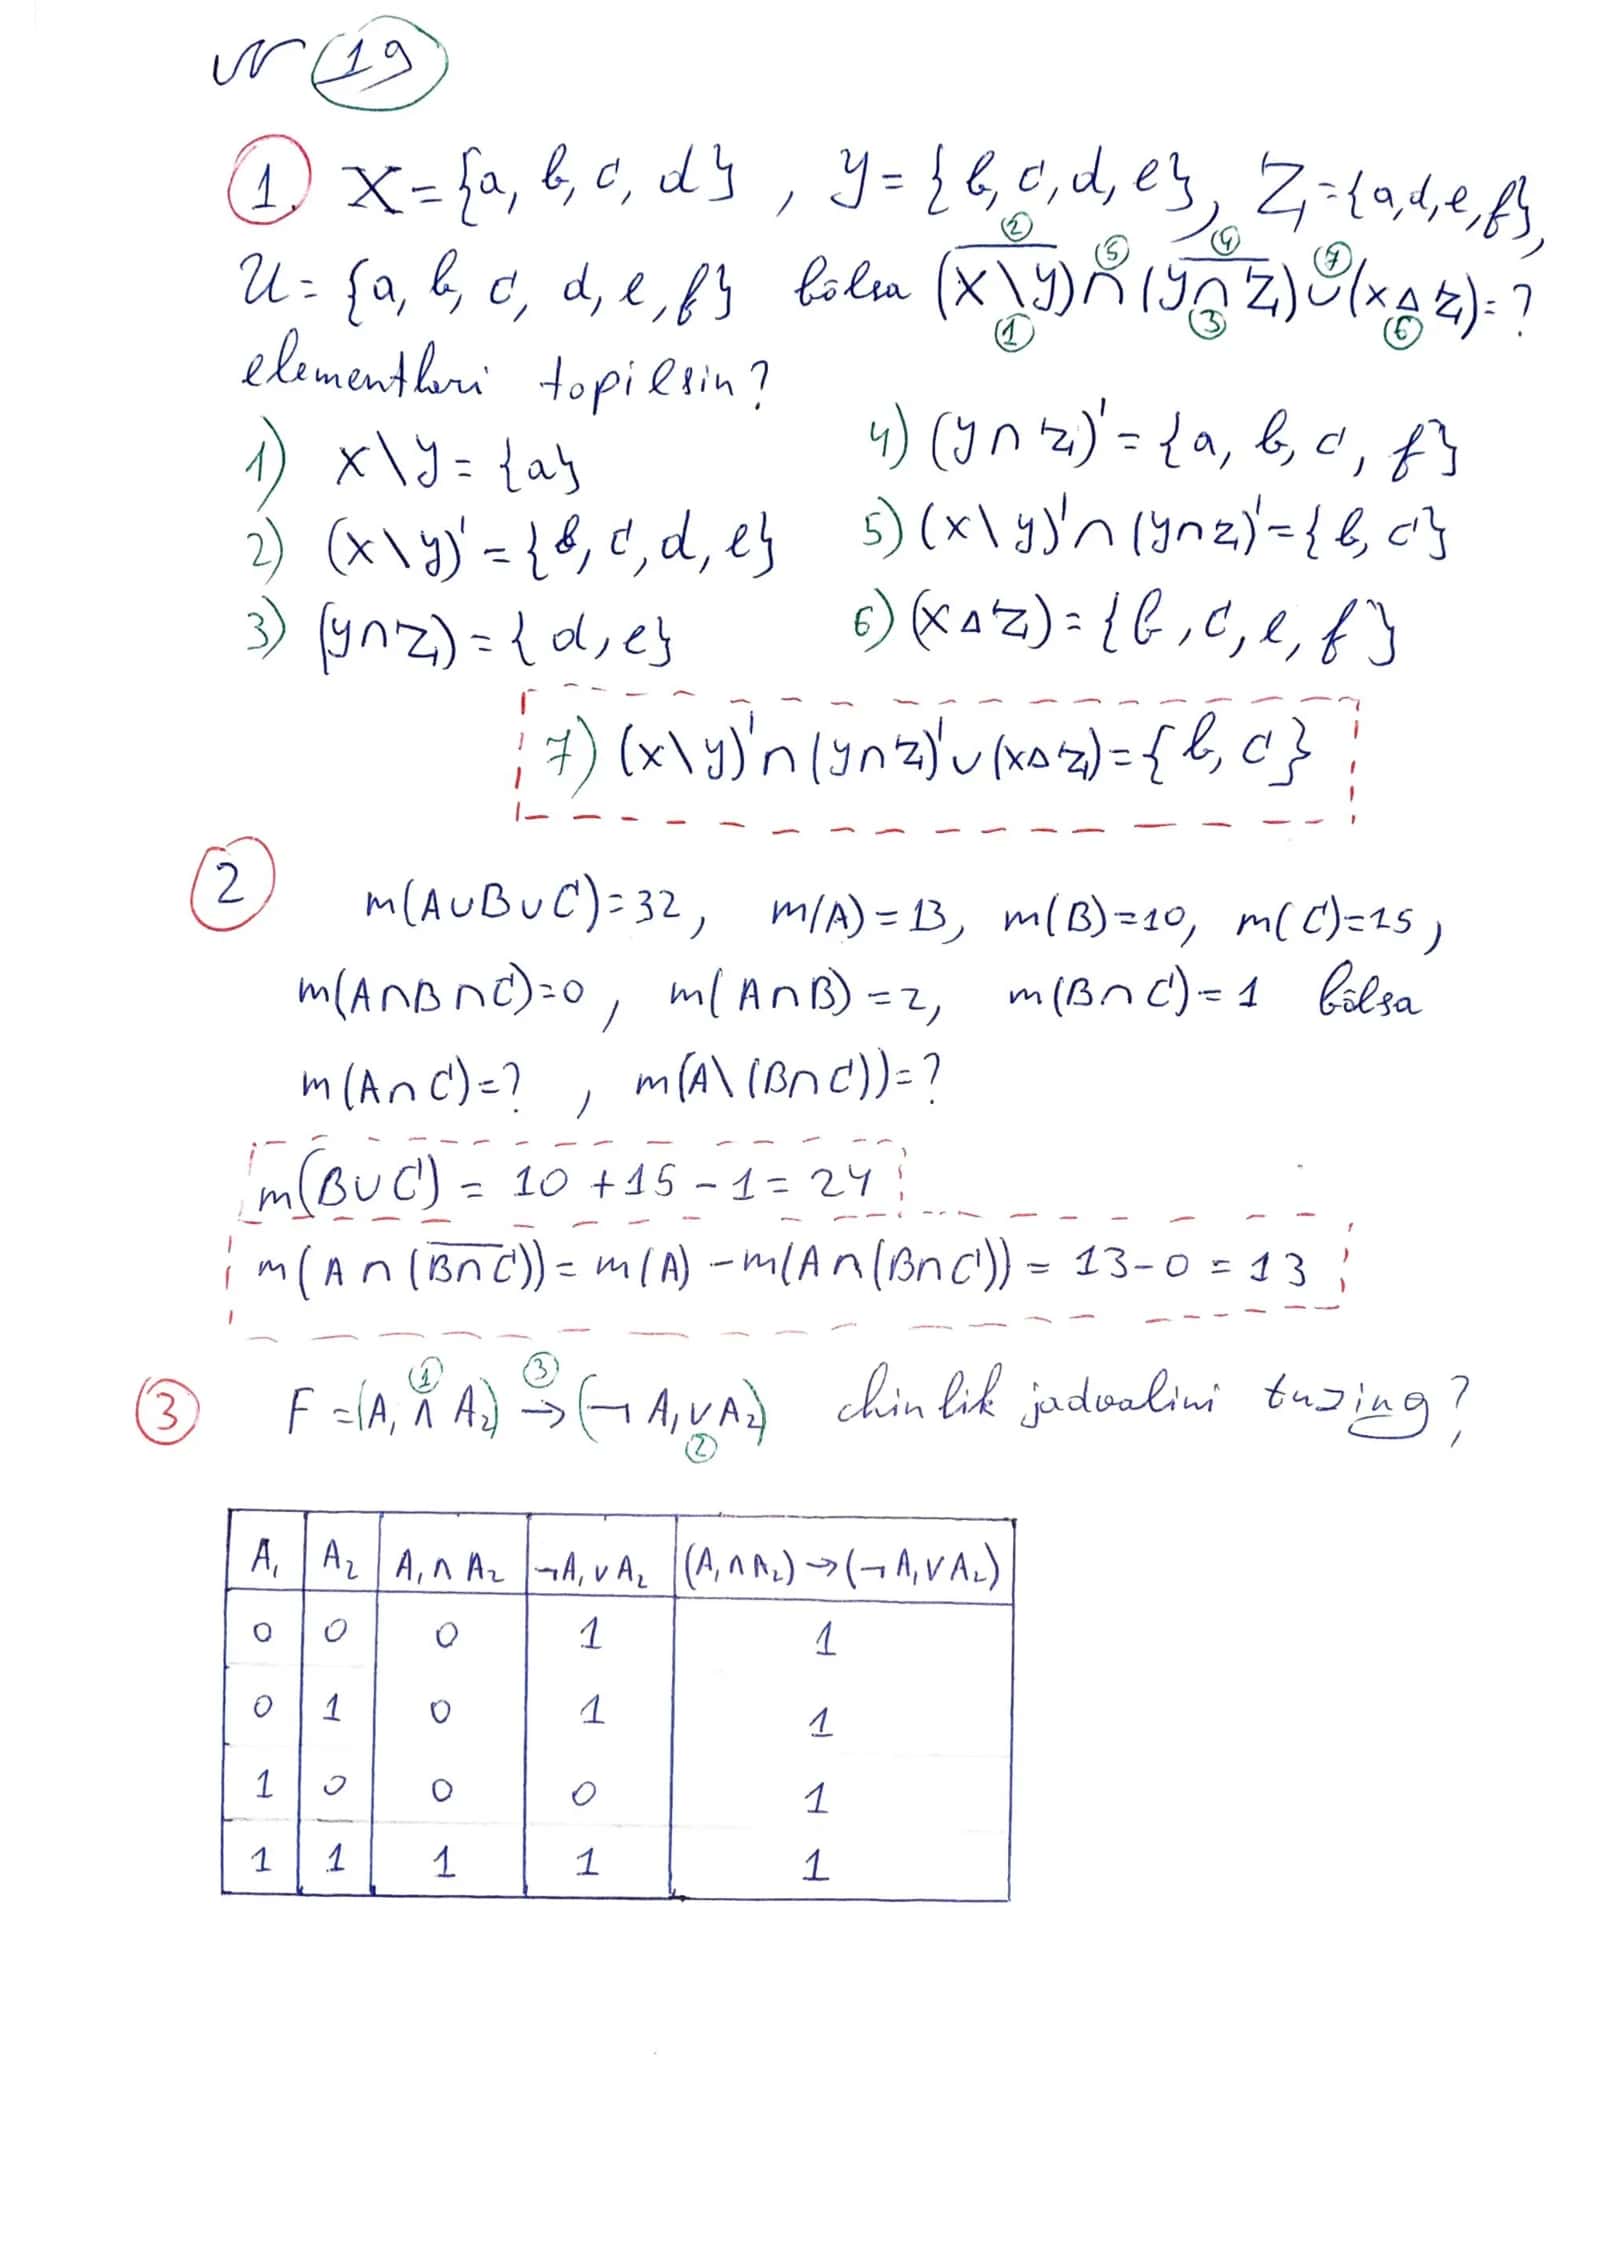 № 19
1. X={a, b, c, d}, y={b, c, d, e}, Z={a,d,e,f},
② ⑤ ④ ⑦
U={a, b, c, d, e, f} bõlsa (x\y)∩(y∩Z)∪(x△Z)=?
① ③ ⑥
elementlari topilsin?
1) x\y={a}
2) (x\y)'={b, c, d, e}
3) (y∩Z)={d, e}
4) (y∩Z)'={a, b, c, f}
5) (x\y)'∩(y∩z)'={b, c}
6) (x△Z)={b, c, e, f}
7) (x\y)'∩(y∩Z)'∪(x△Z)={b, c}
2 m(A∪B∪C)=32, m(A)=13, m(B)=10, m(C)=15,
m(A∩B∩C)=0, m(A∩B)=2, m(B∩C)=1 bõlsa
m(A∩C)=?, m(A\(B∩C))=?
m(B∪C) = 10+15-1=24
m(A∩(B̅∩̅C̅))=m(A)-m(A∩(B∩C))=13-0=13
① ③
3 F=(A₁∧A₂)→(¬A₁∨A₂) chinlik jadvalini tuzing?
②
A₁ A₂ A₁∧A₂ ¬A₁∨A₂ (A₁∧A₂)→(¬A₁∨A₂)
0 0 0 1 1
0 1 0 1 1
1 0 0 0 1
1 1 1 1 1